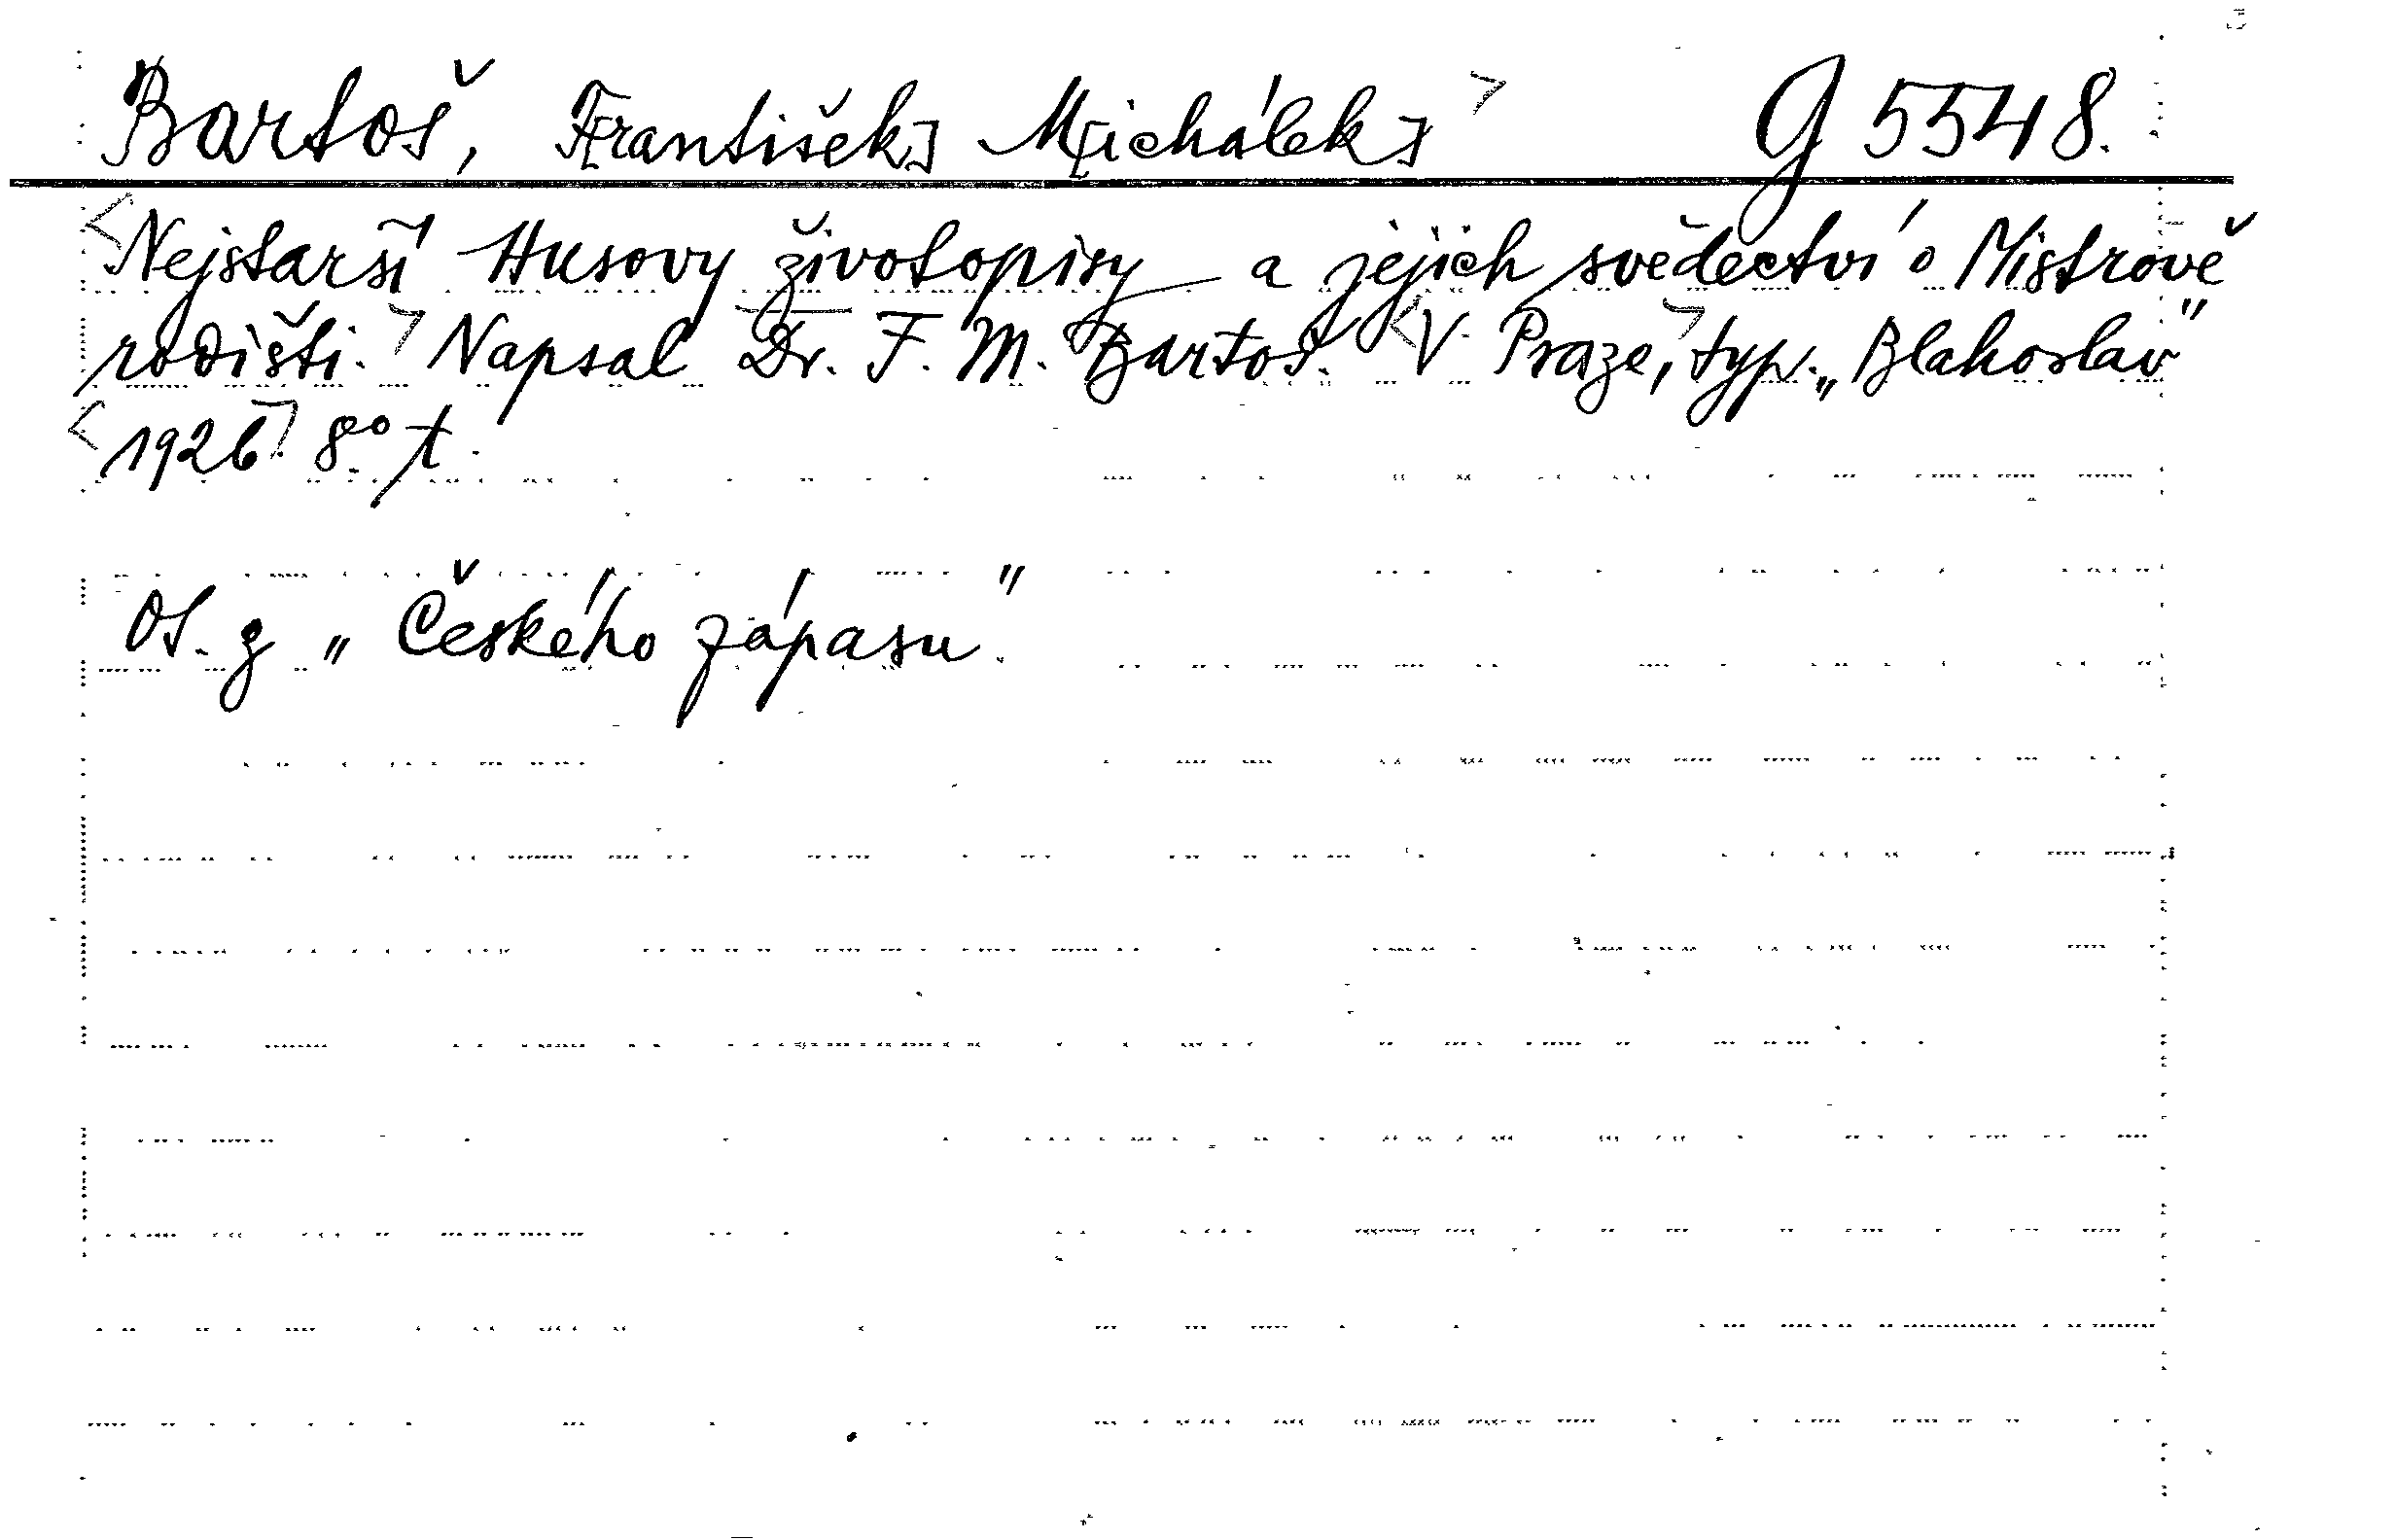 Bartoš, F[rantišek] M[ichálek] G 5548.
Nejstarší Husovy životopisy a jejich svědectví o Mistrově
rodišti. Napsal Dr. F. M. Bartoš. V Praze, typ. „Blahoslav"
1926. 8° t.
Ot. z „Českého zápasu."